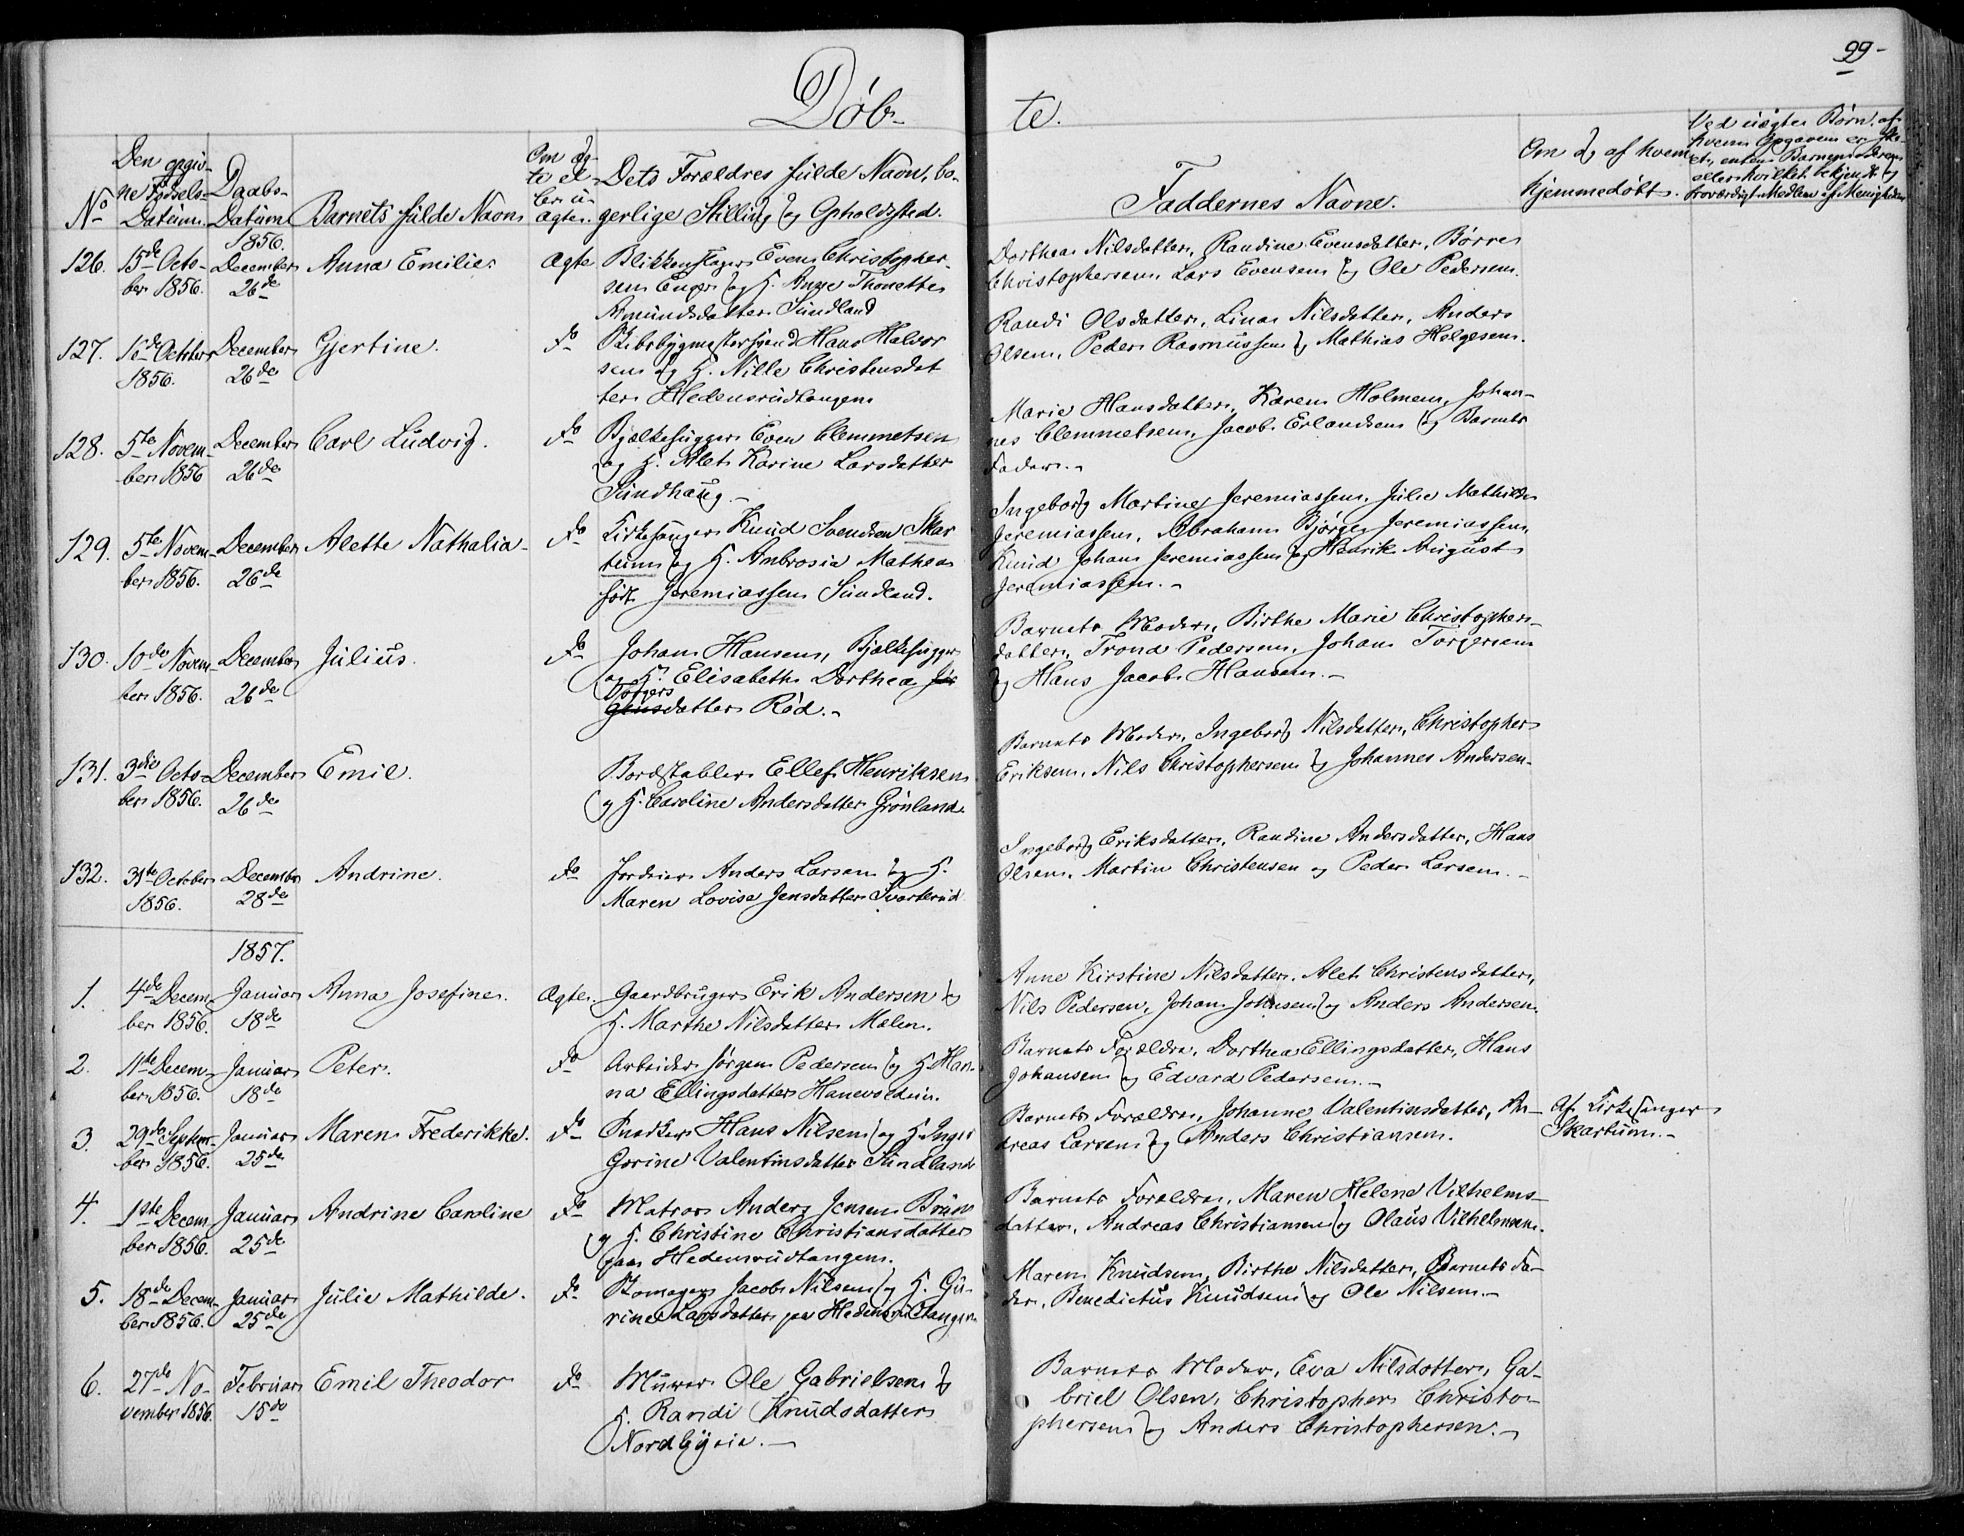 99-
Døb-
te.
No
Den opgiv-
ne Fødsels-
Datum.
Daabs-
Datum
Barnets fulde Navn
Om æg-
te el-
ler u-
ægte.
Dets Forældres fulde Navn, bo-
gerlige Stilling og Opholdssted.
Faddernes Navne.
Om og af hvem
hjemmedøbt.
Ved uægte Børn, af
hvem Opgaven er ske-
et, enten Barnemoderen
eller hvilket bekjendt og
troværdigt Medlem af Menigheden
1856.
126. 15de Octo-
ber 1856.
December
26de
Anna Emilie.
Ægte
Blikkenslager Even Christopher-
sen Enger og H. Anne Thonette
Amundsdatter Sundland
Dorthea Nilsdatter, Randine Evensdatter, Børre
Christophersen, Lars Evensen og Ole Pedersen.
127. 16de October
1856.
December
26de
Gjertine.
do
Skibsbygmestersvend Hans Halvor
sen og H. Nille Christensdat
ter Hedensrudtangen
Randi Olsdatter, Lina Nilsdatter, Anders
Olsen, Peder Rasmussen og Mathias Helgesen.
128. 5te Novem-
ber 1856
December
26de
Carl Ludvig.
do
Bjælkehugger Even Clemmetsen
og H. Alet Karine Larsdatter
Sundhaug.-
Marie Hansdatter, Karen Holmen, Johan-
nes Clemmetsen, Jacob Erlandsen og Barnets
Fader.-
129. 5te Novem-
ber 1856.
December
26de
Alette Nathalia-
do
Kirkesanger Knud Svendsen Skar
tum og H. Ambrosia Mathea
født Jeremiassen Sundland.
Ingeborg Martine Jeremiassen, Julie Mathilde
Jeremiassen, Abraham Bjørge Jeremiassen,
Knud Johan Jeremiassen og Hendrik August
Jeremiassen.-
130. 10de Novem-
ber 1856.
December
26de
Julius.
do
Johan Hansen, Bjælkehugger
og H. Elisabeth Dorthea Jør
Torgers
gensdatter Rød.-
Barnets Moder, Birthe Marie Christophers-
datter, Trond Pedersen, Johan Torgersen
og Hans Jacob Hansen.-
131. 3die Octo-
ber 1856.
December
26de
Emil.
Bordstabler Ellef Henriksen
og H. Caroline Andersdatter Grønland.
Barnets Moder, Ingeborg Nilsdatter, Christopher
Eriksen, Nils Christophersen og Johannes Andersen.
132. 31te October
1856.
December
28de
Andrine.
do
Jordeier Anders Larsen og H.
Maren Lovise Jensdatter Svarterud
Ingeborg Eriksdatter, Randine Andersdatter, Hans
Olsen, Martin Christensen og Peder Larsen.-
1857.
1. 4de Decem-
ber 1856.
Januar
18de
Anna Josefine.
Ægte.
Gaardbruger Erik Andersen og
H. Marthe Nilsdatter Malen.
Anne Kirstine Nilsdatter, Alet Christensdatter,
Nils Pedersen, Johan Johnsen og Anders Andersen.
2. 11te Decem-
ber 1856.
Januar
18de
Peter.
do
Arbeider Jørgen Pedersen og H. Han-
na Ellingsdatter Hanevoldeie.
Barnets Forældre, Dorthea Ellingsdatter, Hans
Johansen og Edvard Pedersen.-
3. 29de Septem-
ber 1856.
Januar
25de
Maren Frederikke.
do
Snedker Hans Nilsen og H. Inger
Gorine Valentinsdatter Sundland
Barnets Forældre, Johanne Valentinsdatter, An-
dreas Larsen og Anders Christiansen.
Af Kirkesanger
Skartum.-
4. 1ste Decem-
ber 1856.
Januar
25de
Andrine Caroline
do
Matros Anders Jensen Bruun
og H. Christine Christiansdatter
paa Hedensrudtangen.
Barnets Forældre, Maren Helene Vilhelms-
datter, Andreas Christiansen og Olaus Vilhelmsen.
5. 18de Decem-
ber 1856.
Januar
25de
Julie Mathilde.
do
Skomager Jacob Nilsen og H. Gu-
rine Larsdatter paa Hedensrudtangen
Maren Knudsen, Birthe Nilsdatter, Barnets Fa-
der, Benedictus Knudsen og Ole Nilsen.-
6. 27de No-
vember 1856.
Februar
15de
Emil Theodor
do
Murer Ole Gabrielsen og
H. Randi Knudsdatter
Nordbyeie.-
Barnets Moder, Eva Nilsdatter, Ga-
briel Olsen, Christopher Christo-
phersen og Anders Christophersen.-